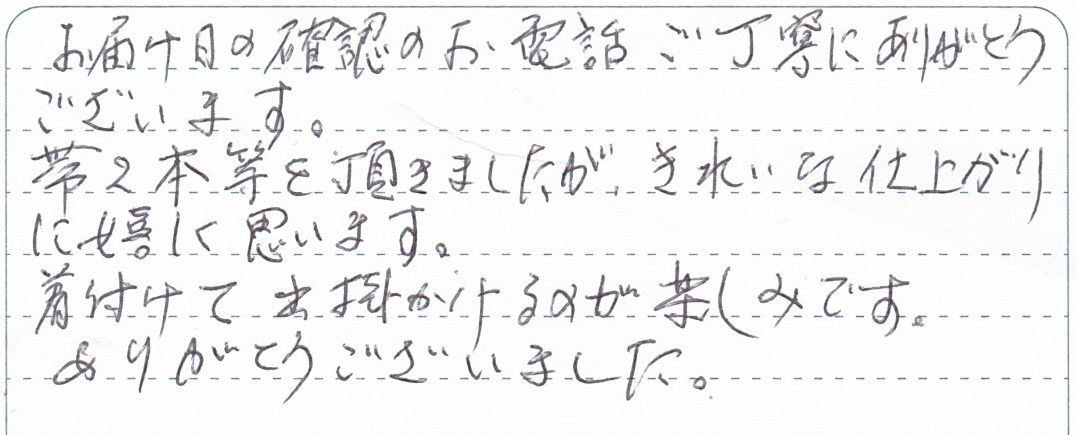 お届け日の確認のお電話ご丁寧にありがとう
ございます。
帯2本等を頂きましたが、きれいな仕上がり
に嬉しく思います。
着付けて出掛かけるのが楽しみです。
ありがとうございました。